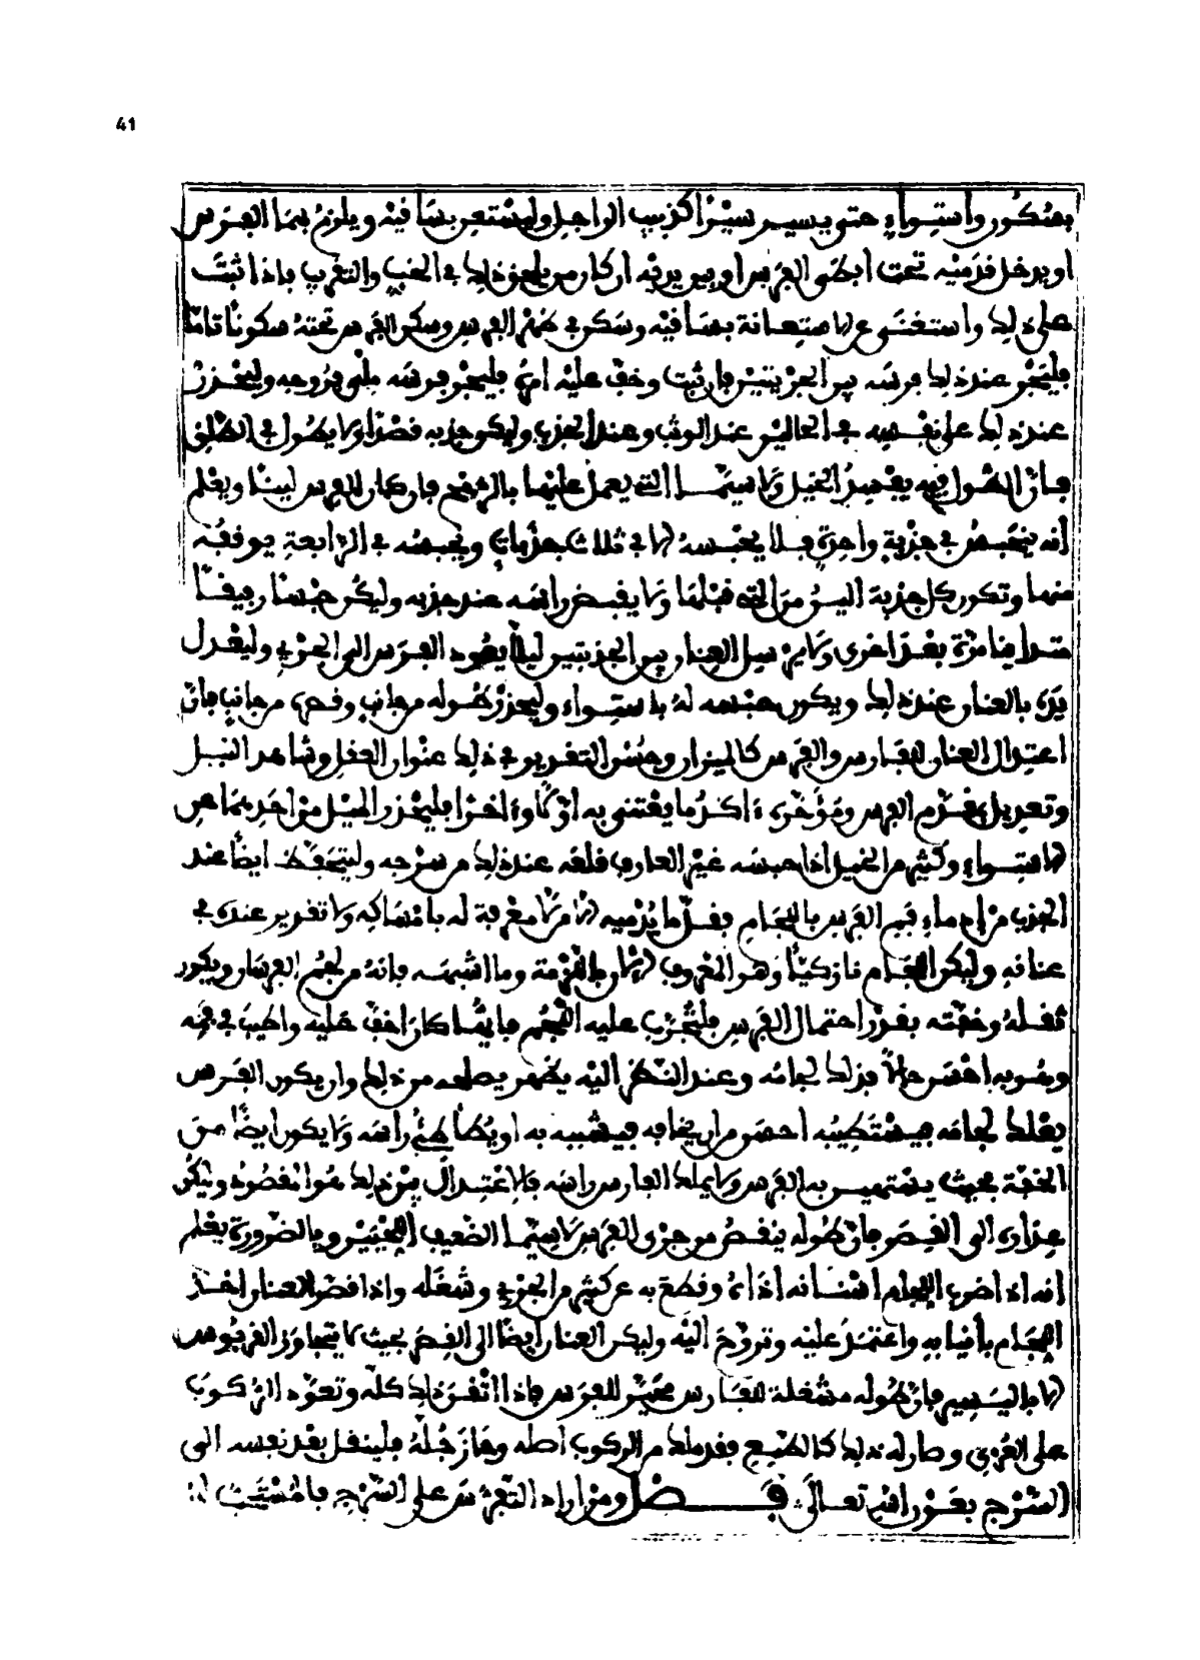 41
بسكون واستواء حتى يسير سيرا كدبيب الراجل وليستعن بساقيه ويلزم بهما الفرس
او يدخل قدميه تحت ابطى الفرس او بين يديه ان كان من يلحق ذلك في الخبب والتقريب فاذا ثبت
على ذلك واستغنى عن الاستعانة بساقيه وسكن في ظهر الفرس وسكن الفرس تحته سكونا تاما
فليجر عند ذلك فرسه بين الجريتين فان ثبت وخف عليه امره فليجر فرسه ملء فروجه وليحذر
عند ذلك على نفسه في الحالين عند الوثب وعند الجري وليكن جريه قصدا ولا يطول في الطلق
فان الطول فيه يفسد الخيل ولا سيما التي يعمل عليها بالرمح فان كان الفرس لينا ويعلم
أنه ينحبس في جذبة واحدة فلا يحبسه الا في ثلاث جذبات ويحبسه في الرابعة يوقفه
منها وتكون كل جذبة الين من التي قبلها ولا يقبض رأسه عند جذبه وليكن حبسا رفيقا
متداينا مرة بعد اخرى ولا يرسل العنان بين الجذبتين ليلا يعود الفرس الى الجري وليعدل
يده بالعنان عند ذلك ويكون حبسه له باستواء وليحذر طوله من جانب وقصره من جانب فان
اعتدال العنان للفارس والفرس كالميزان وحسن التقدير في ذلك عنوان العقل وشاهد النبل
وتعديل مقدم الفرس ومؤخره اكد ما يعتنى به اولا واخرا فليحذر الميل من احدهما عن
الاستواء وكثير من الخيل اذا حبسه غير العارف قلعه عند ذلك من سرجه وليتحفظ ايضا عند
الجذب من ادماء فم الفرس باللجام فقل ما يدميه الا من لا معرفة له بامساكه ولا تقدير عنده في
عنانه وليكن اللجام نازكيا وهو المعروف وما اشبهه فانه من لجم الفرسان ويكون
ثقله وخفته بقدر احتمال الفرس فليجرب عليه اللجم فايها كان اخف عليه واطيب في فمه
وهو به احسن حالا فذلك لجامه وعند النظر اليه يظهر يصلحه من ذلك وان يكون الفرس
يعلك لجامه فيستطيبه احسن من ان يخافه فيشبب به او يطأطئ رأسه ولا يكون ايضا من
الخفة بحيث يستهين به الفرس ولا يملك الفارس رأسه فالاعتدال بين ذلك هو المقصود وليكن
عذاره الى القصر فان طوله ينقص من جري الفرس لا سيما الضعيف اللحيين وبالضرورة يعلم
انه اذا ضرب اللجام اسنانه اذاه وقطع به عن كثير من الجري وشغله واذا قصر العنان اخذ
اللجام بأنيابه واعتمد عليه وتروح اليه وليكن العنان ايضا الى القصر بحيث لا يتجاوز القربوس
الا باليسير فان طوله مشغلة للفارس محير للفرس فاذا اتفق ذلك كله وتعود الركوب
على العري وصار له ذلك كالطبع فقد ملك من الركوب اصله وحاز جله فلينقل بعد نفسه الى
السرج بعون الله تعالى فصل ومن اراد التفرس على السرج فالمستحب له